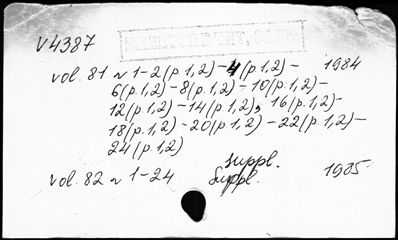 V4387
vol. 81 N 1-2(p.1,2)-4(p.1,2)- 1984
6(p.1,2)-8(p.1,2)-10(p.1,2)-
12(p.1,2)-14(p.1,2), 16(p.1,2)-
18(p.1,2)-20(p.1,2)-22(p.1,2)-
24(p.1,2)
suppl.
vol. 82 N 1-24 Suppl. 1985